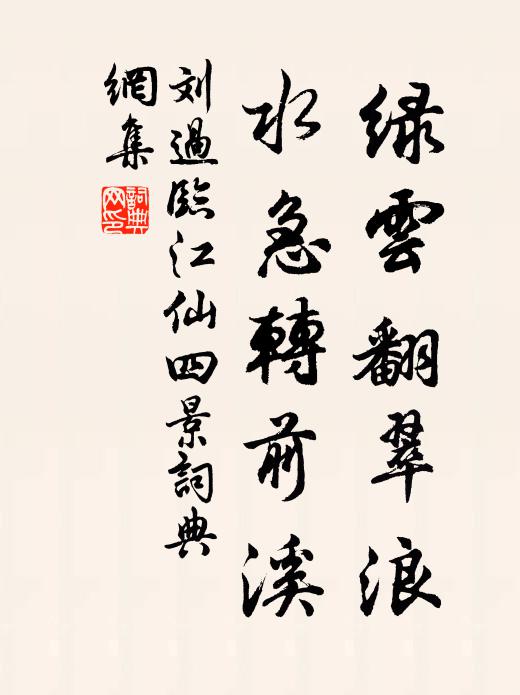 绿雲翻翠浪
水急轉前溪
刘過臨江仙四景詞典
網集
詞典网印